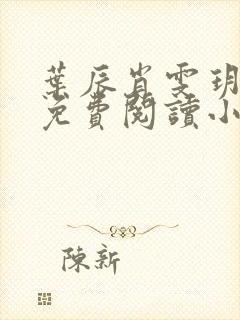 葉辰肖雯玥
免費閱讀小
陳新